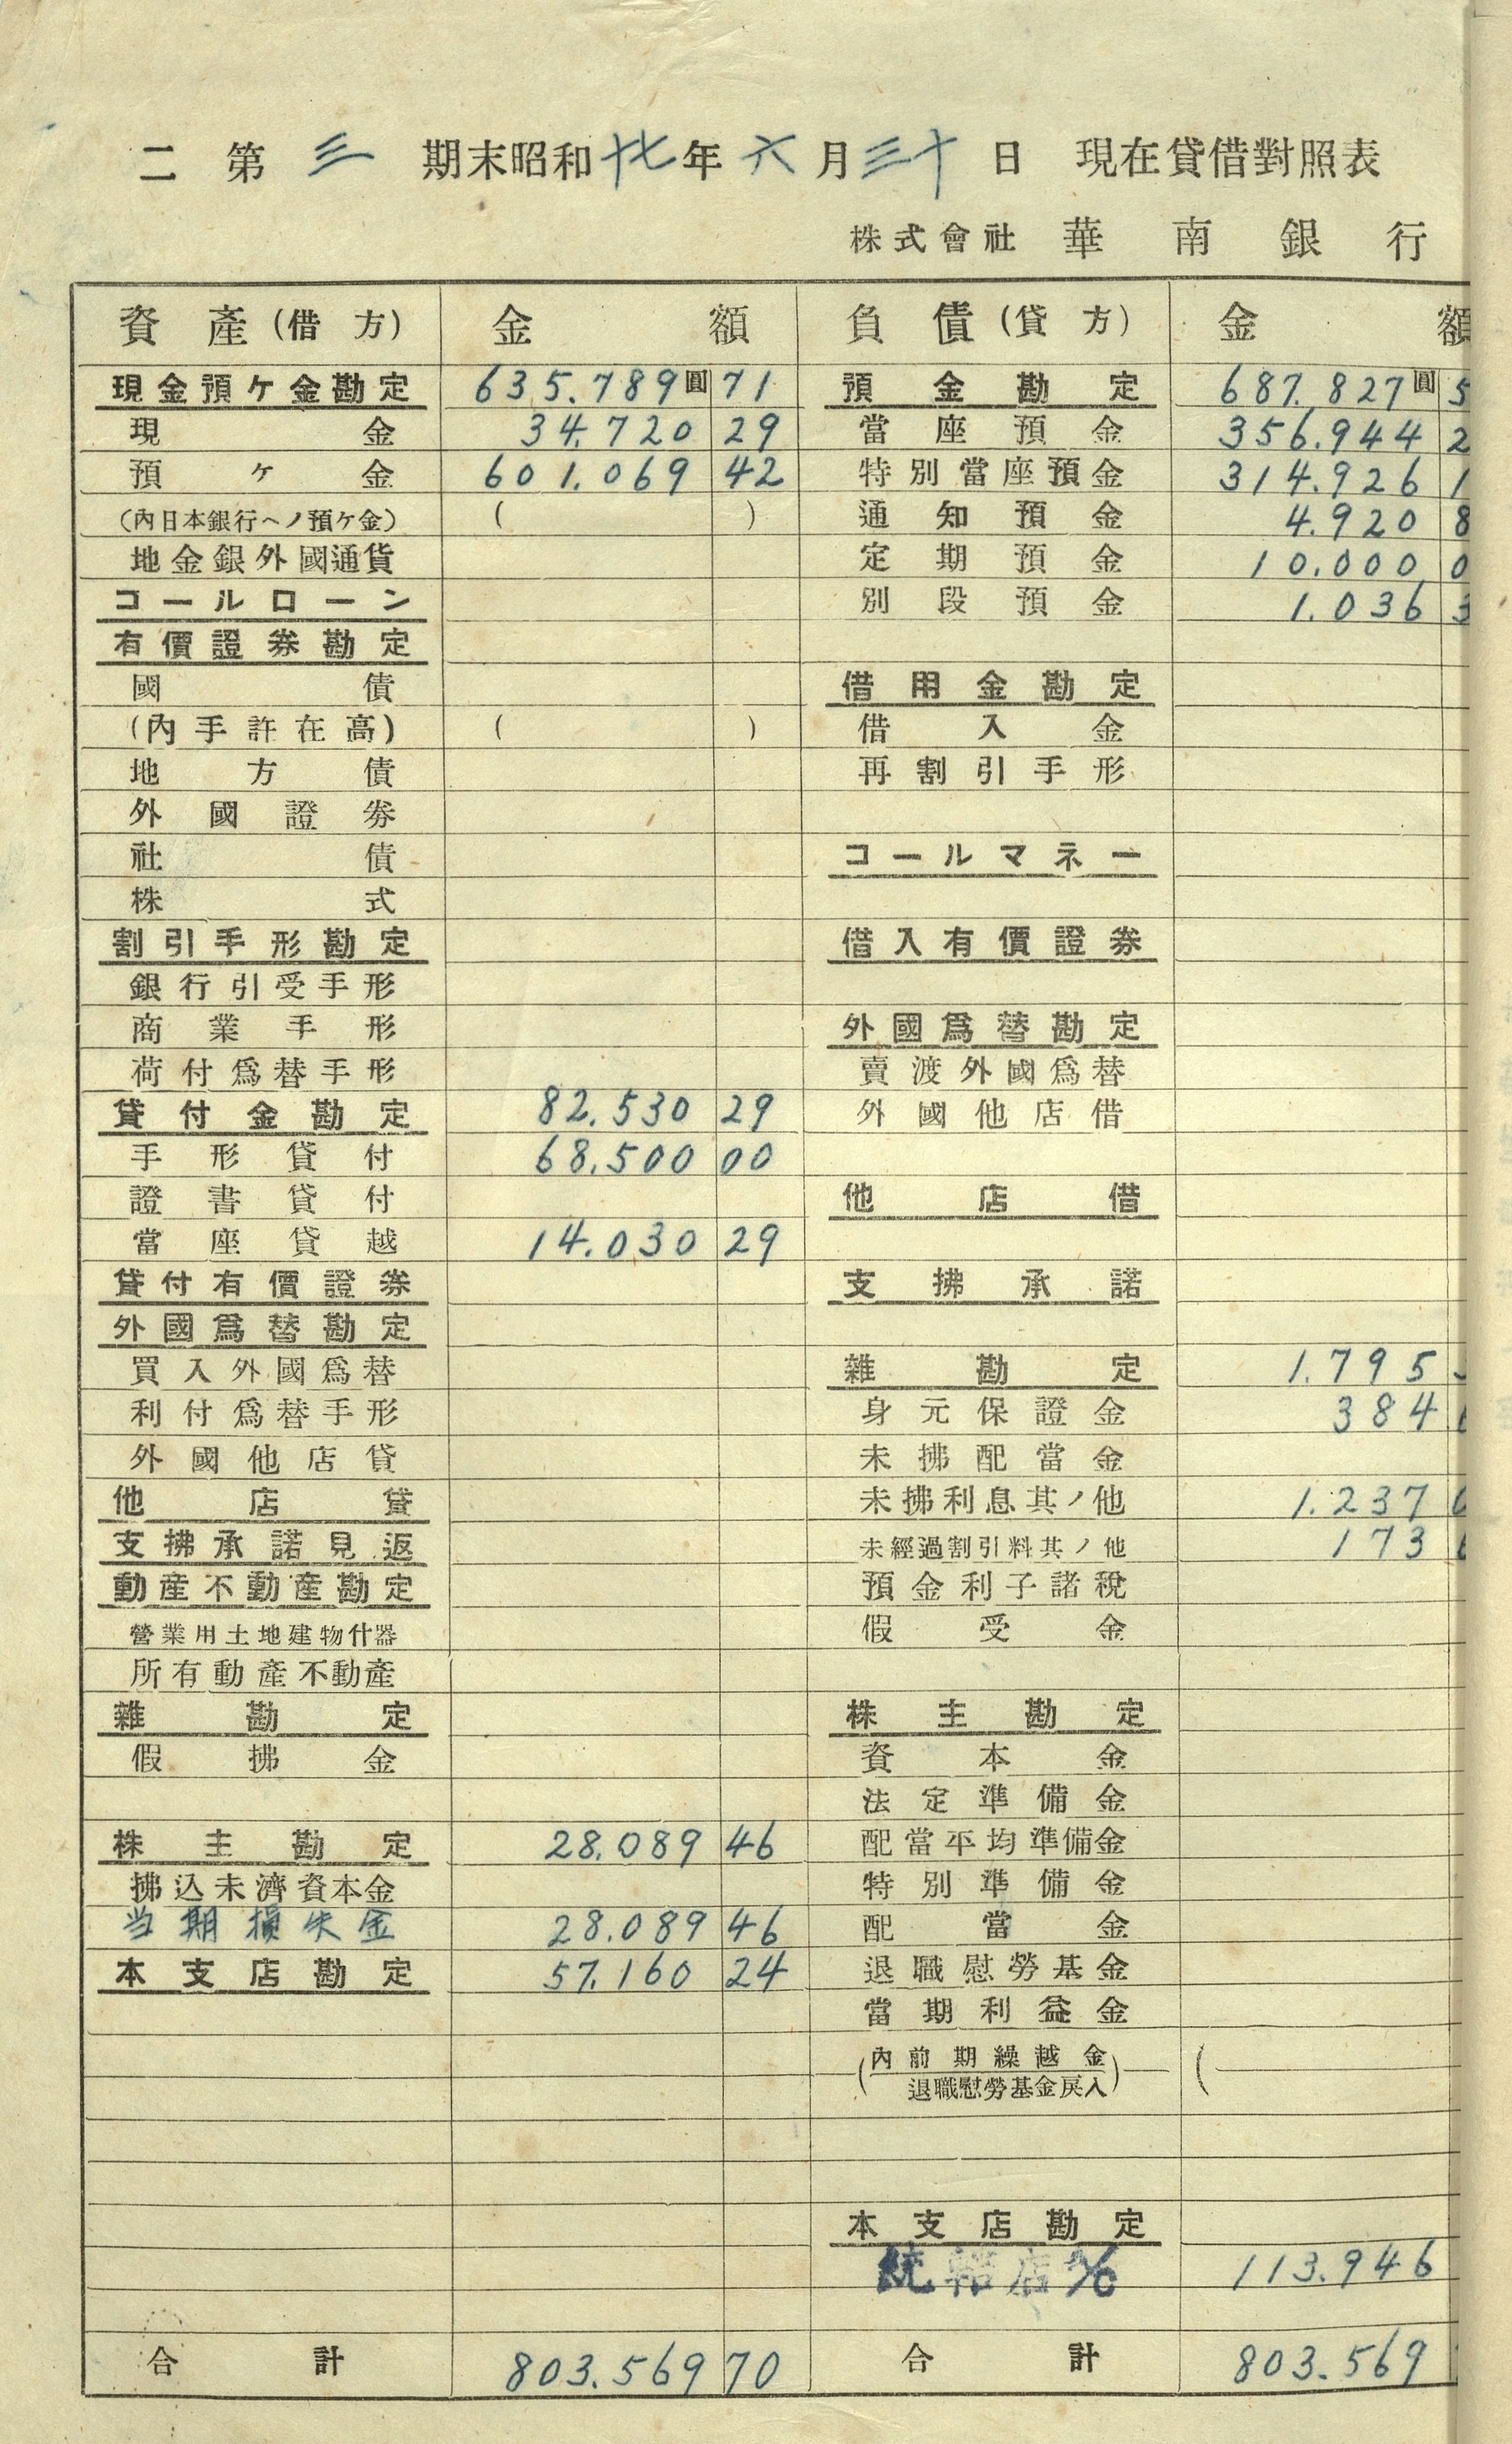 二 第 三 期末昭和十七年 六 月三十 日 現在貸借對照表
株式會社 華南銀行
資產(借方) 金額 負債(貸方) 金額
現金預ケ金勘定 635.789圓71 預金勘定 687.827圓5
現金 34.720 29 當座預金 356.944 2
預ケ金 601.069 42 特別當座預金 314.926 1
(內日本銀行ヘノ預ケ金) ( ) 通知預金 4.920 8
地金銀外國通貨 定期預金 10.000 0
コールローン 別段預金 1.036 3
有價證券勘定
國債 借用金勘定
(內手許在高) ( ) 借入金
地方債 再割引手形
外國證券
社債 コールマネー
株式
割引手形勘定 借入有價證券
銀行引受手形
商業手形 外國爲替勘定
荷付爲替手形 賣渡外國爲替
貸付金勘定 82.530 29 外國他店借
手形貸付 68.500 00
證書貸付 他店借
當座貸越 14.030 29
貸付有價證券 支拂承諾
外國爲替勘定
買入外國爲替 雜勘定 1.795
利付爲替手形 身元保證金 384
外國他店貸 未拂配當金
他店貸 未拂利息其ノ他 1.237
支拂承諾見返 未經過割引料其ノ他 173
動產不動產勘定 預金利子諸稅
營業用土地建物什器 假受金
所有動產不動產
雜勘定 株主勘定
假拂金 資本金
法定準備金
株主勘定 28.089 46 配當平均準備金
拂込未濟資本金 特別準備金
当期損失金 28.089 46 配當金
本支店勘定 57.160 24 退職慰勞基金
當期利益金
(內前期繰越金 (
退職慰勞基金戾入)
本支店勘定
統轄店a/c 113.946
合計 803.569 70 合計 803.569